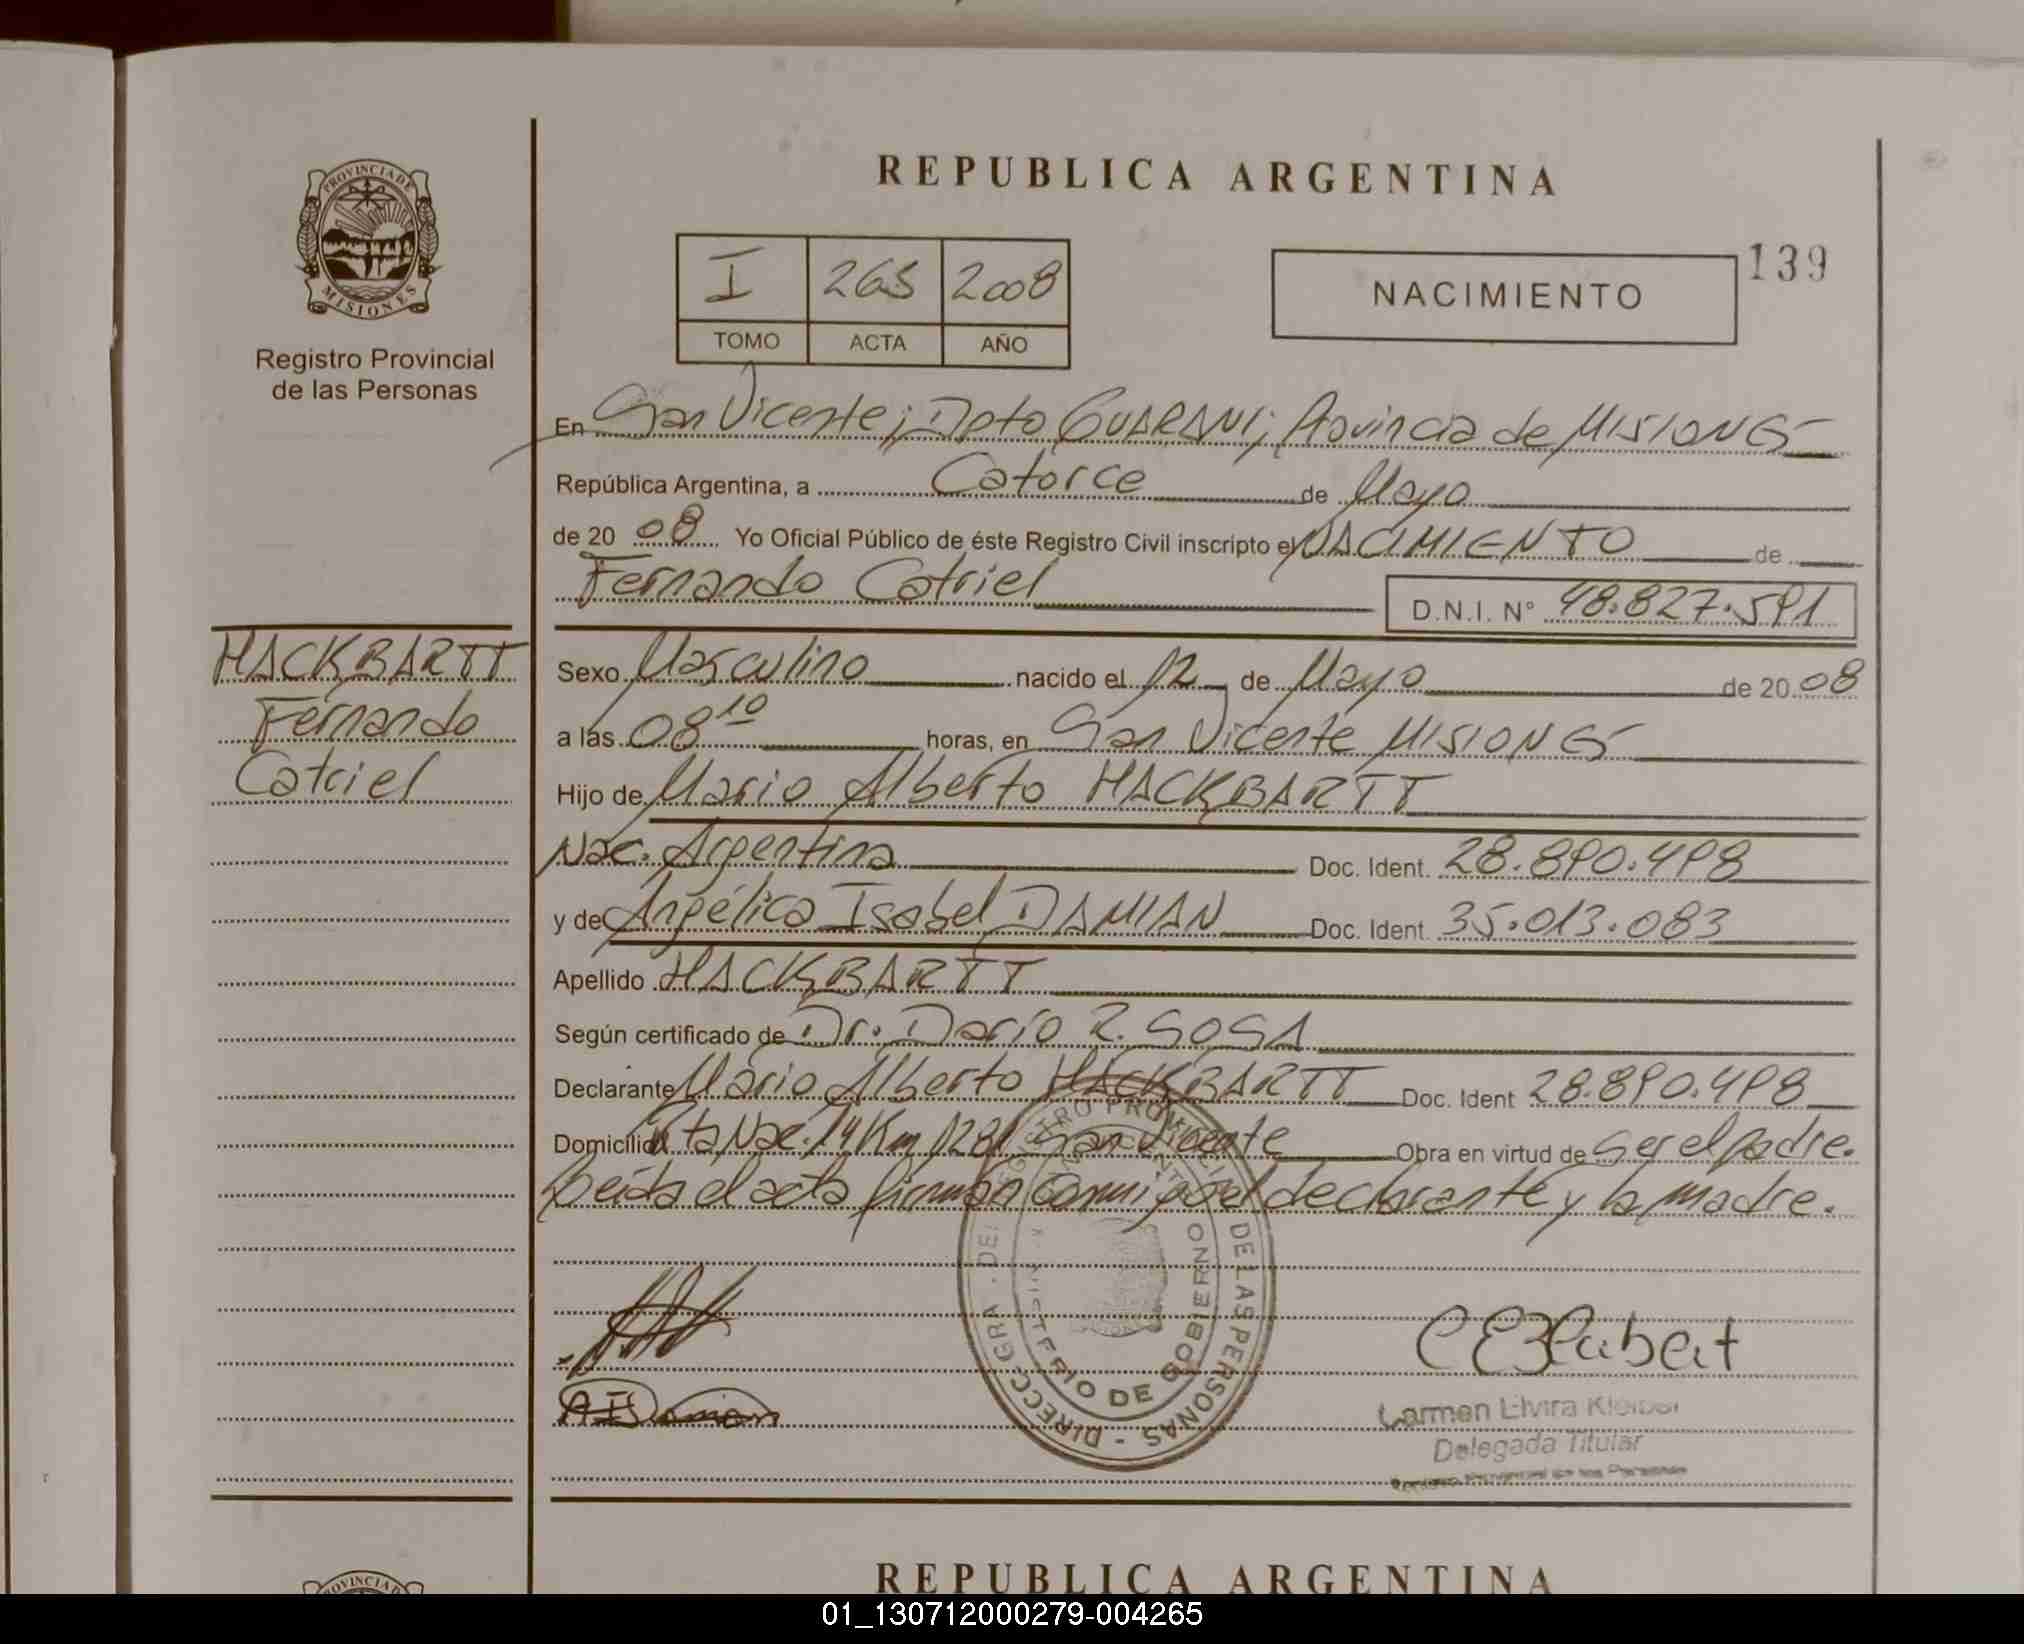 PROVINCIA DE
MISIONES
Registro Provincial
de las Personas
REPUBLICA ARGENTINA
I 265 2008
TOMO ACTA AÑO
NACIMIENTO
139
En San Vicente; Dpto GUARANI; Provincia de MISIONES
República Argentina, a Catorce de Mayo
de 20 08 Yo Oficial Público de éste Registro Civil inscripto el NACIMIENTO de
Fernando Catriel
D.N.I. N° 48.827.591
HACKBARTT
Fernando
Catriel
Sexo Masculino nacido el 12 de Mayo de 20 08
a las 08 10 horas, en San Vicente MISIONES
Hijo de Mario Alberto HACKBARTT
Nac. Argentina Doc. Ident. 28.890.498
y de Angélica Isabel DAMIAN Doc. Ident. 35.013.083
Apellido HACKBARTT
Según certificado de Dr. Darío R. SOSA
Declarante Mario Alberto HACKBARTT Doc. Ident 28.890.498
Domicilio Rta Nac. 14 Km 1281 San Vicente Obra en virtud de ser el padre.
Leída el acta firman conmigo el declarante y la madre.
DIRECC. GRAL. DEL REGISTRO PROVINCIAL DE LAS PERSONAS -
MINISTERIO DE GOBIERNO
AIDamian
Carmen Elvira
Delegada Titular
Registro Provincial de las Personas
PROVINCIA
REPUBLICA ARGENTINA
01_130712000279-004265